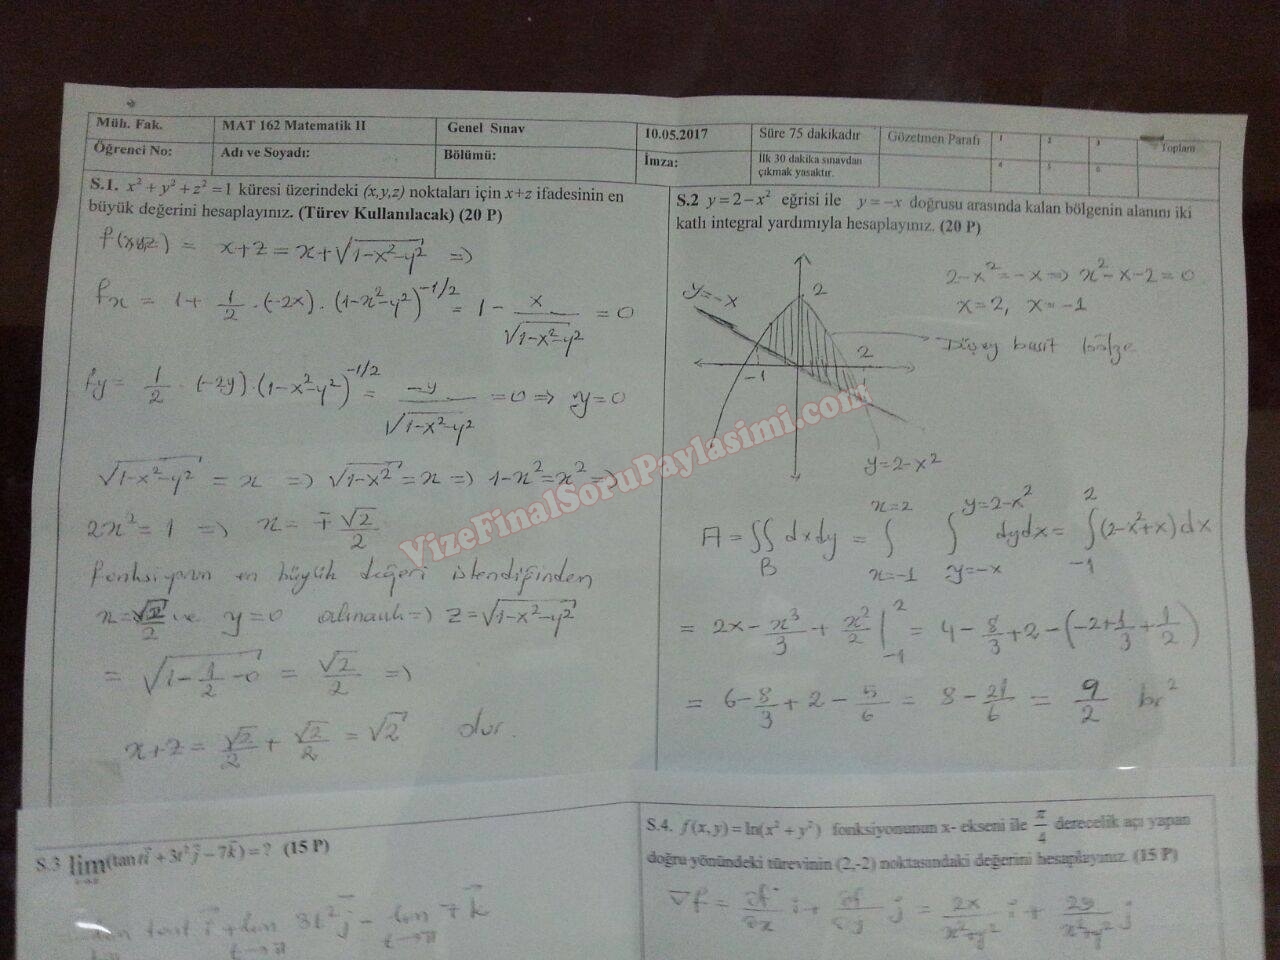 Müh. Fak. MAT 162 Matematik II Genel Sınav 10.05.2017 Süre 75 dakikadır Gözetmen Parafı 1 2 3 Toplam
Öğrenci No: Adı ve Soyadı: Bölümü: İmza: İlk 30 dakika sınavdan çıkmak yasaktır. 4 5 6
S.1. x² + y² + z² = 1 küresi üzerindeki (x,y,z) noktaları için x+z ifadesinin en
büyük değerini hesaplayınız. (Türev Kullanılacak) (20 P)
= x+z = x+√(1-x²-y²) =>
fx = 1 + 1/2 · (-2x) · (1-x²-y²)^(-1/2) = 1 - x/√(1-x²-y²) = 0
fy = 1/2 · (-2y) · (1-x²-y²)^(-1/2) = -y/√(1-x²-y²) = 0 => y=0
√(1-x²-y²) = x => √(1-x²) = x => 1-x² = x² =>
2x² = 1 => x = ∓√2/2
fonksiyonun en büyük değeri istendiğinden
x = √2/2 ve y=0 alınmalı => z = √(1-x²-y²)
= √(1-1/2-0) = √2/2 =>
x+z = √2/2 + √2/2 = √2 olur.
S.2 y = 2 - x² eğrisi ile y = -x doğrusu arasında kalan bölgenin alanını iki
katlı integral yardımıyla hesaplayınız. (20 P)
2-x² = -x => x²-x-2 = 0
x=2, x=-1
y=-x
2
Düşey basit bölge
-1
2
y=2-x²
A = ∬_B dxdy = ∫_{x=-1}^{x=2} ∫_{y=-x}^{y=2-x²} dydx = ∫_{-1}^{2} (2-x²+x)dx
= 2x - x³/3 + x²/2 |_{-1}^{2} = 4 - 8/3 + 2 - (-2+1/3+1/2)
= 6 - 8/3 + 2 - 5/6 = 8 - 21/6 = 9/2 br²
VizeFinalSoruPaylasimi.com
S.3 lim(tan t i + 3t² j - 7k) = ? (15 P)
tant i + lim 3t² j - lim_{t→π} 7 k
S.4. f(x,y) = ln(x² + y²) fonksiyonunun x- ekseni ile π/4 derecelik açı yapan
doğru yönündeki türevinin (2,-2) noktasındaki değerini hesaplayınız. (15 P)
∇f = ∂f/∂x i + ∂f/∂y j = 2x/(x²+y²) i + 2y/(x²+y²) j